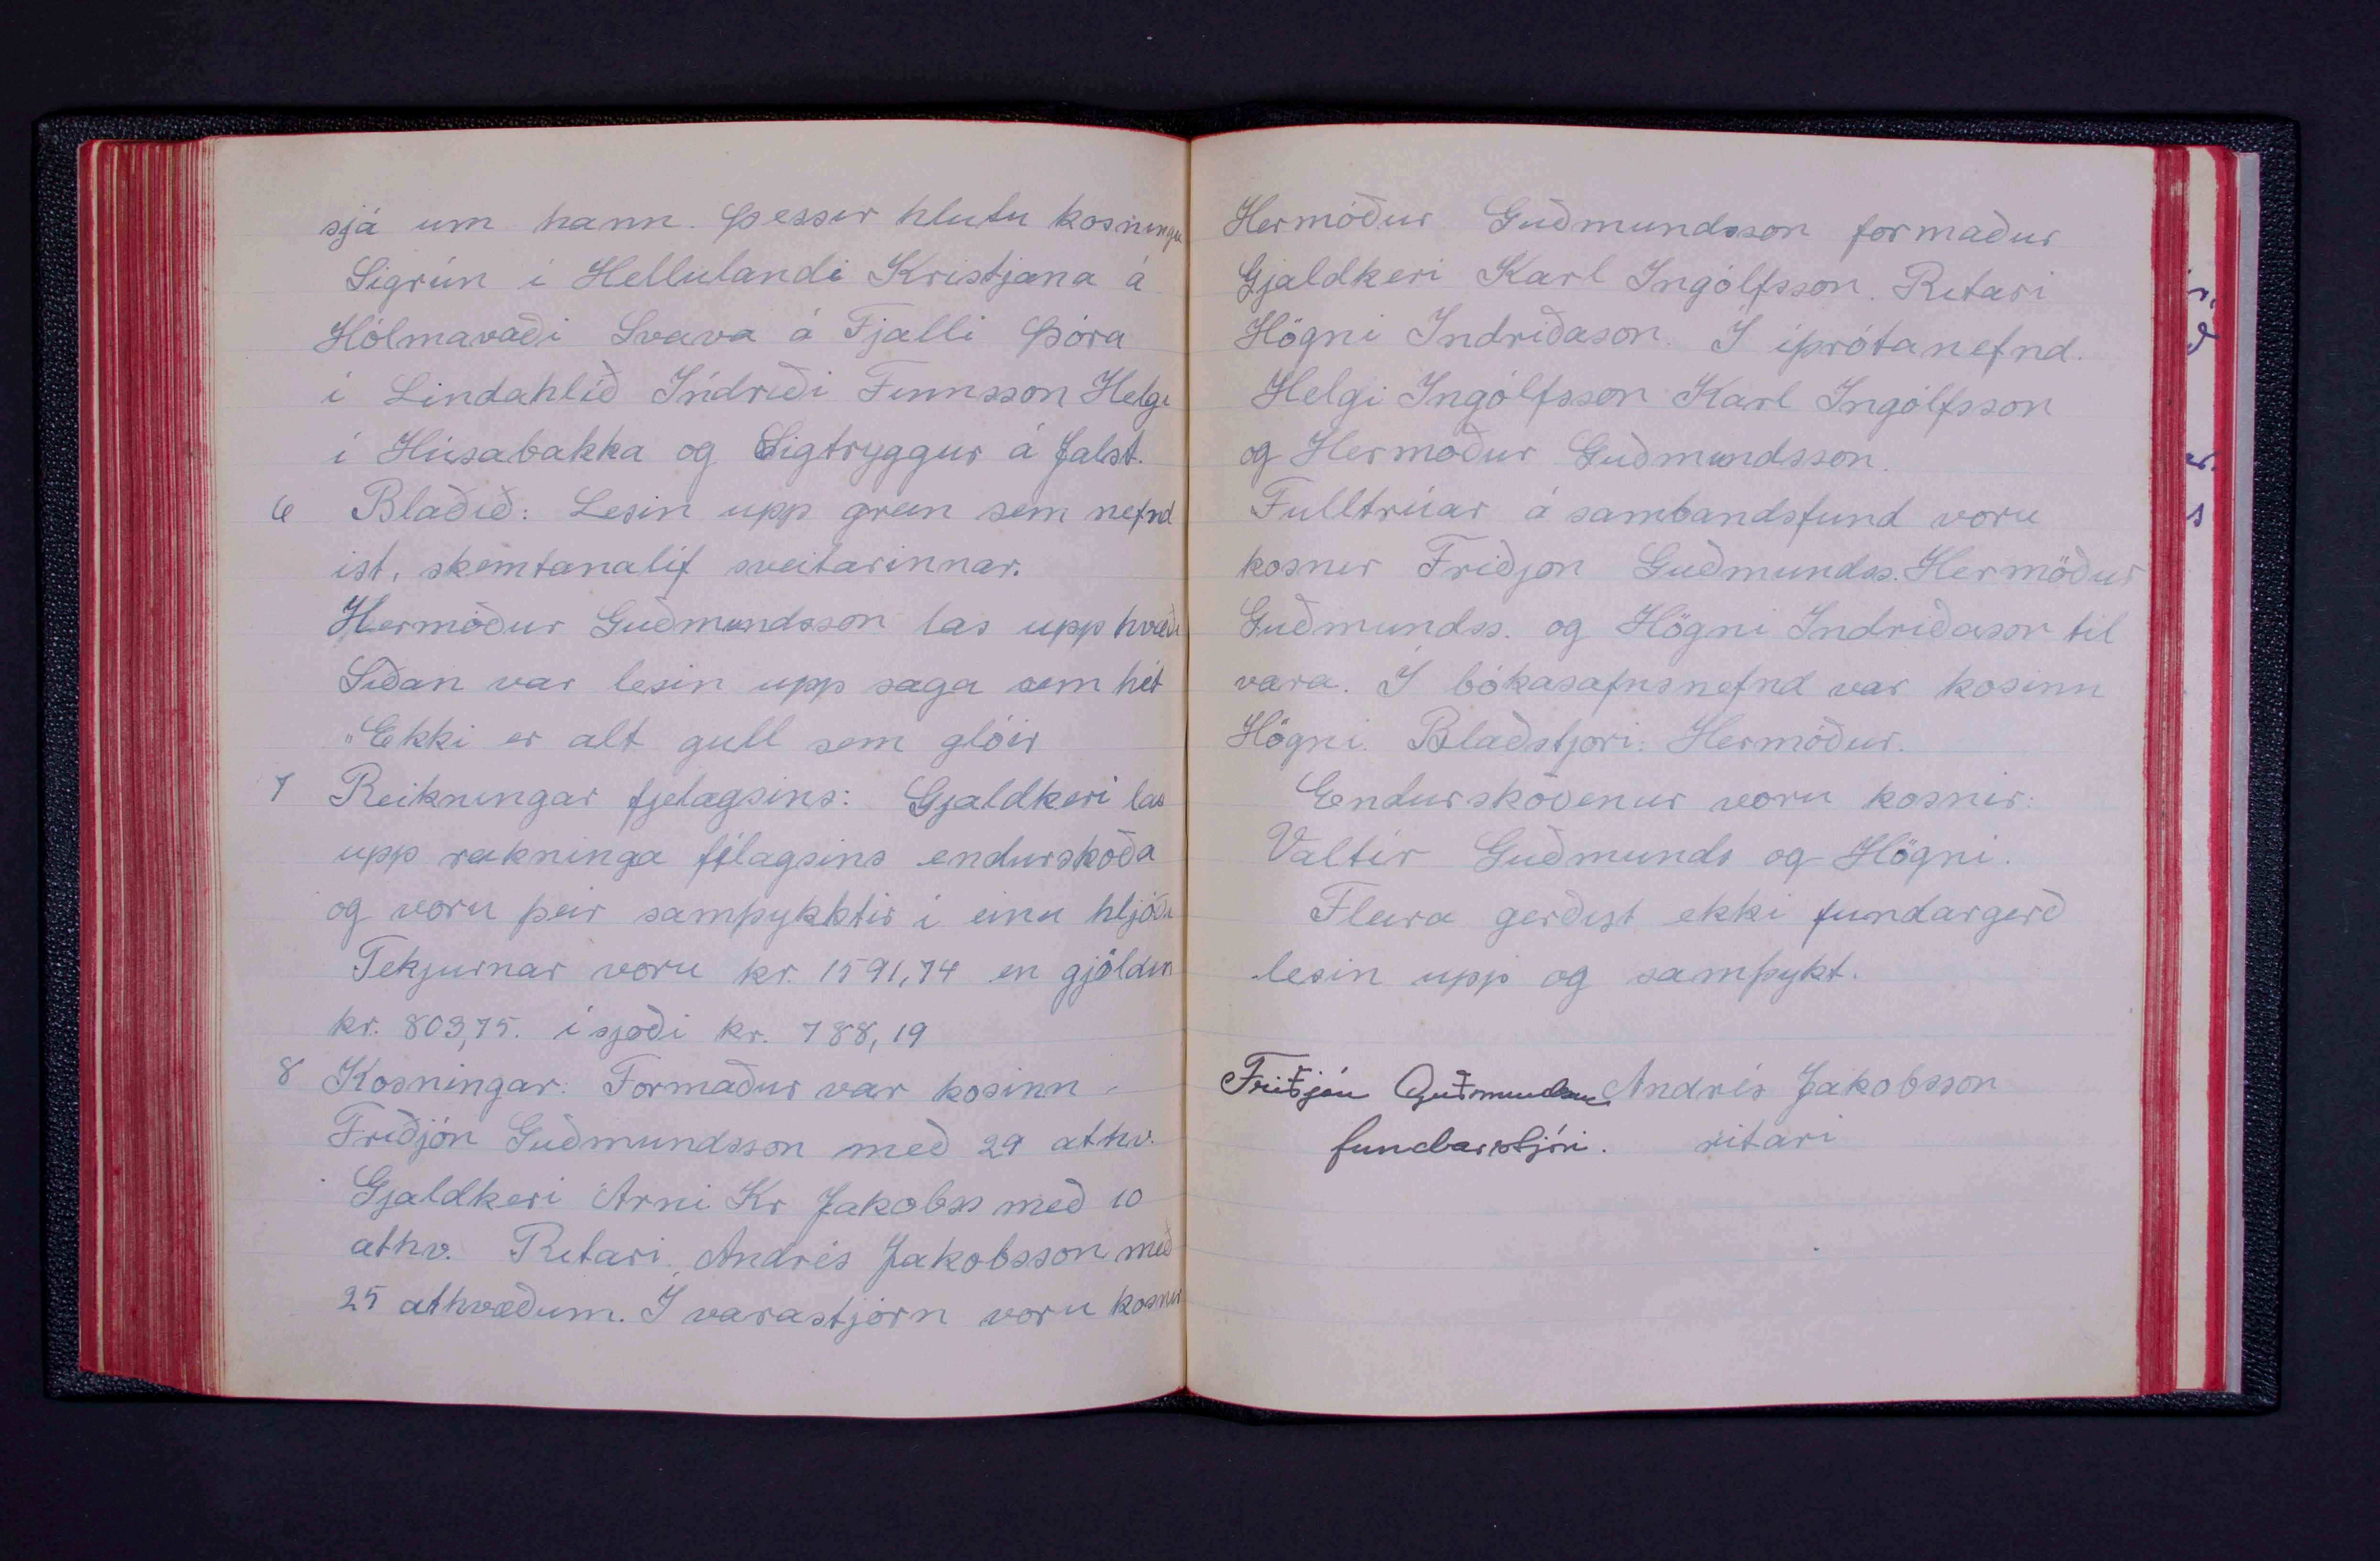 sjá um hann. Þessir hlutu kosningu
Sigrún í Hellulandi Kristjana á
Hólmavaði Svava á Fjalli Þóra
í Lindahlíð Indriði Finnsson Helgi
í Húsabakka og Sigtryggur á Jalst.
6 Blaðið: Lesin upp grein sem nefnd
ist, skemtanalíf sveitarinnar.
Hermóður Guðmundsson las upp kvæði
Síðan var lesin upp saga sem hét
„Ekki er alt gull sem glóir
7 Reikningar fjelagsins: Gjaldkeri las
upp reikninga félagsins endurskoða
og voru þeir samþykktir í einu hljóði
Tekjurnar voru kr. 1591,74 en gjöldin
kr. 803,75. í sjóði kr. 788,19
8 Kosningar: Formaður var kosinn
Friðjón Guðmundsson með 29 athv.
Gjaldkeri Árni Kr Jakobss með 10
athv. Ritari Andrés Jakobsson með
25 athvæðum. Í varastjórn voru kosnir
Hermóður Guðmundsson formaður
Gjaldkeri Karl Ingólfsson. Ritari
Högni Indriðason. Í íþrótanefnd.
Helgi Ingólfsson Karl Ingólfsson
og Hermóður Guðmundsson.
Fulltrúar á sambandsfund voru
kosner Friðjon Guðmundss. Hermóður
Guðmundss. og Högni Indriðason til
vara. Í bókasafnsnefnd var kosinn
Högni. Blaðstjori: Hermóður.
Endurskoðenur voru kosnir:
Valtír Guðmunds og Högni.
Fleira gerðist ekki fundargerð
lesin upp og samþykt.
Friðjón Guðmundsson Andrés Jakobsson
fundarstjóri. ritari